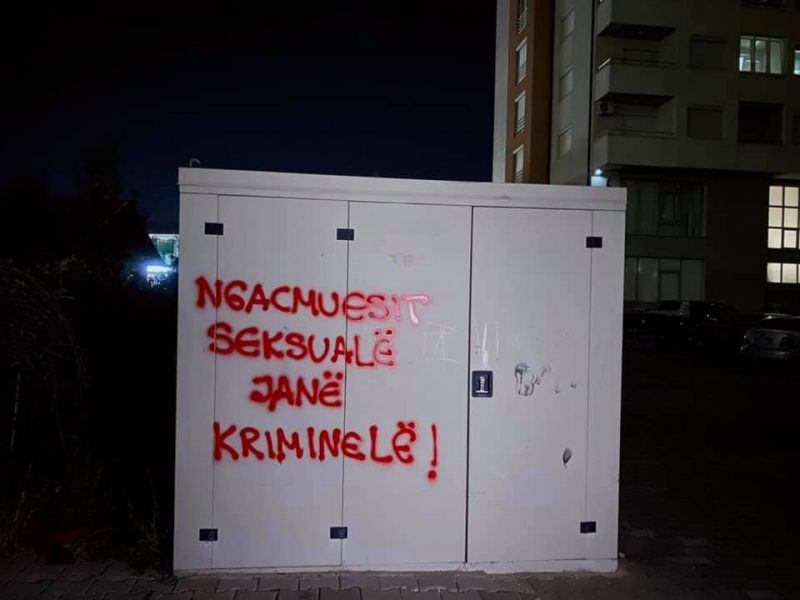 NGACMUESIT
SEKSUALË
JANË
KRIMINELË!